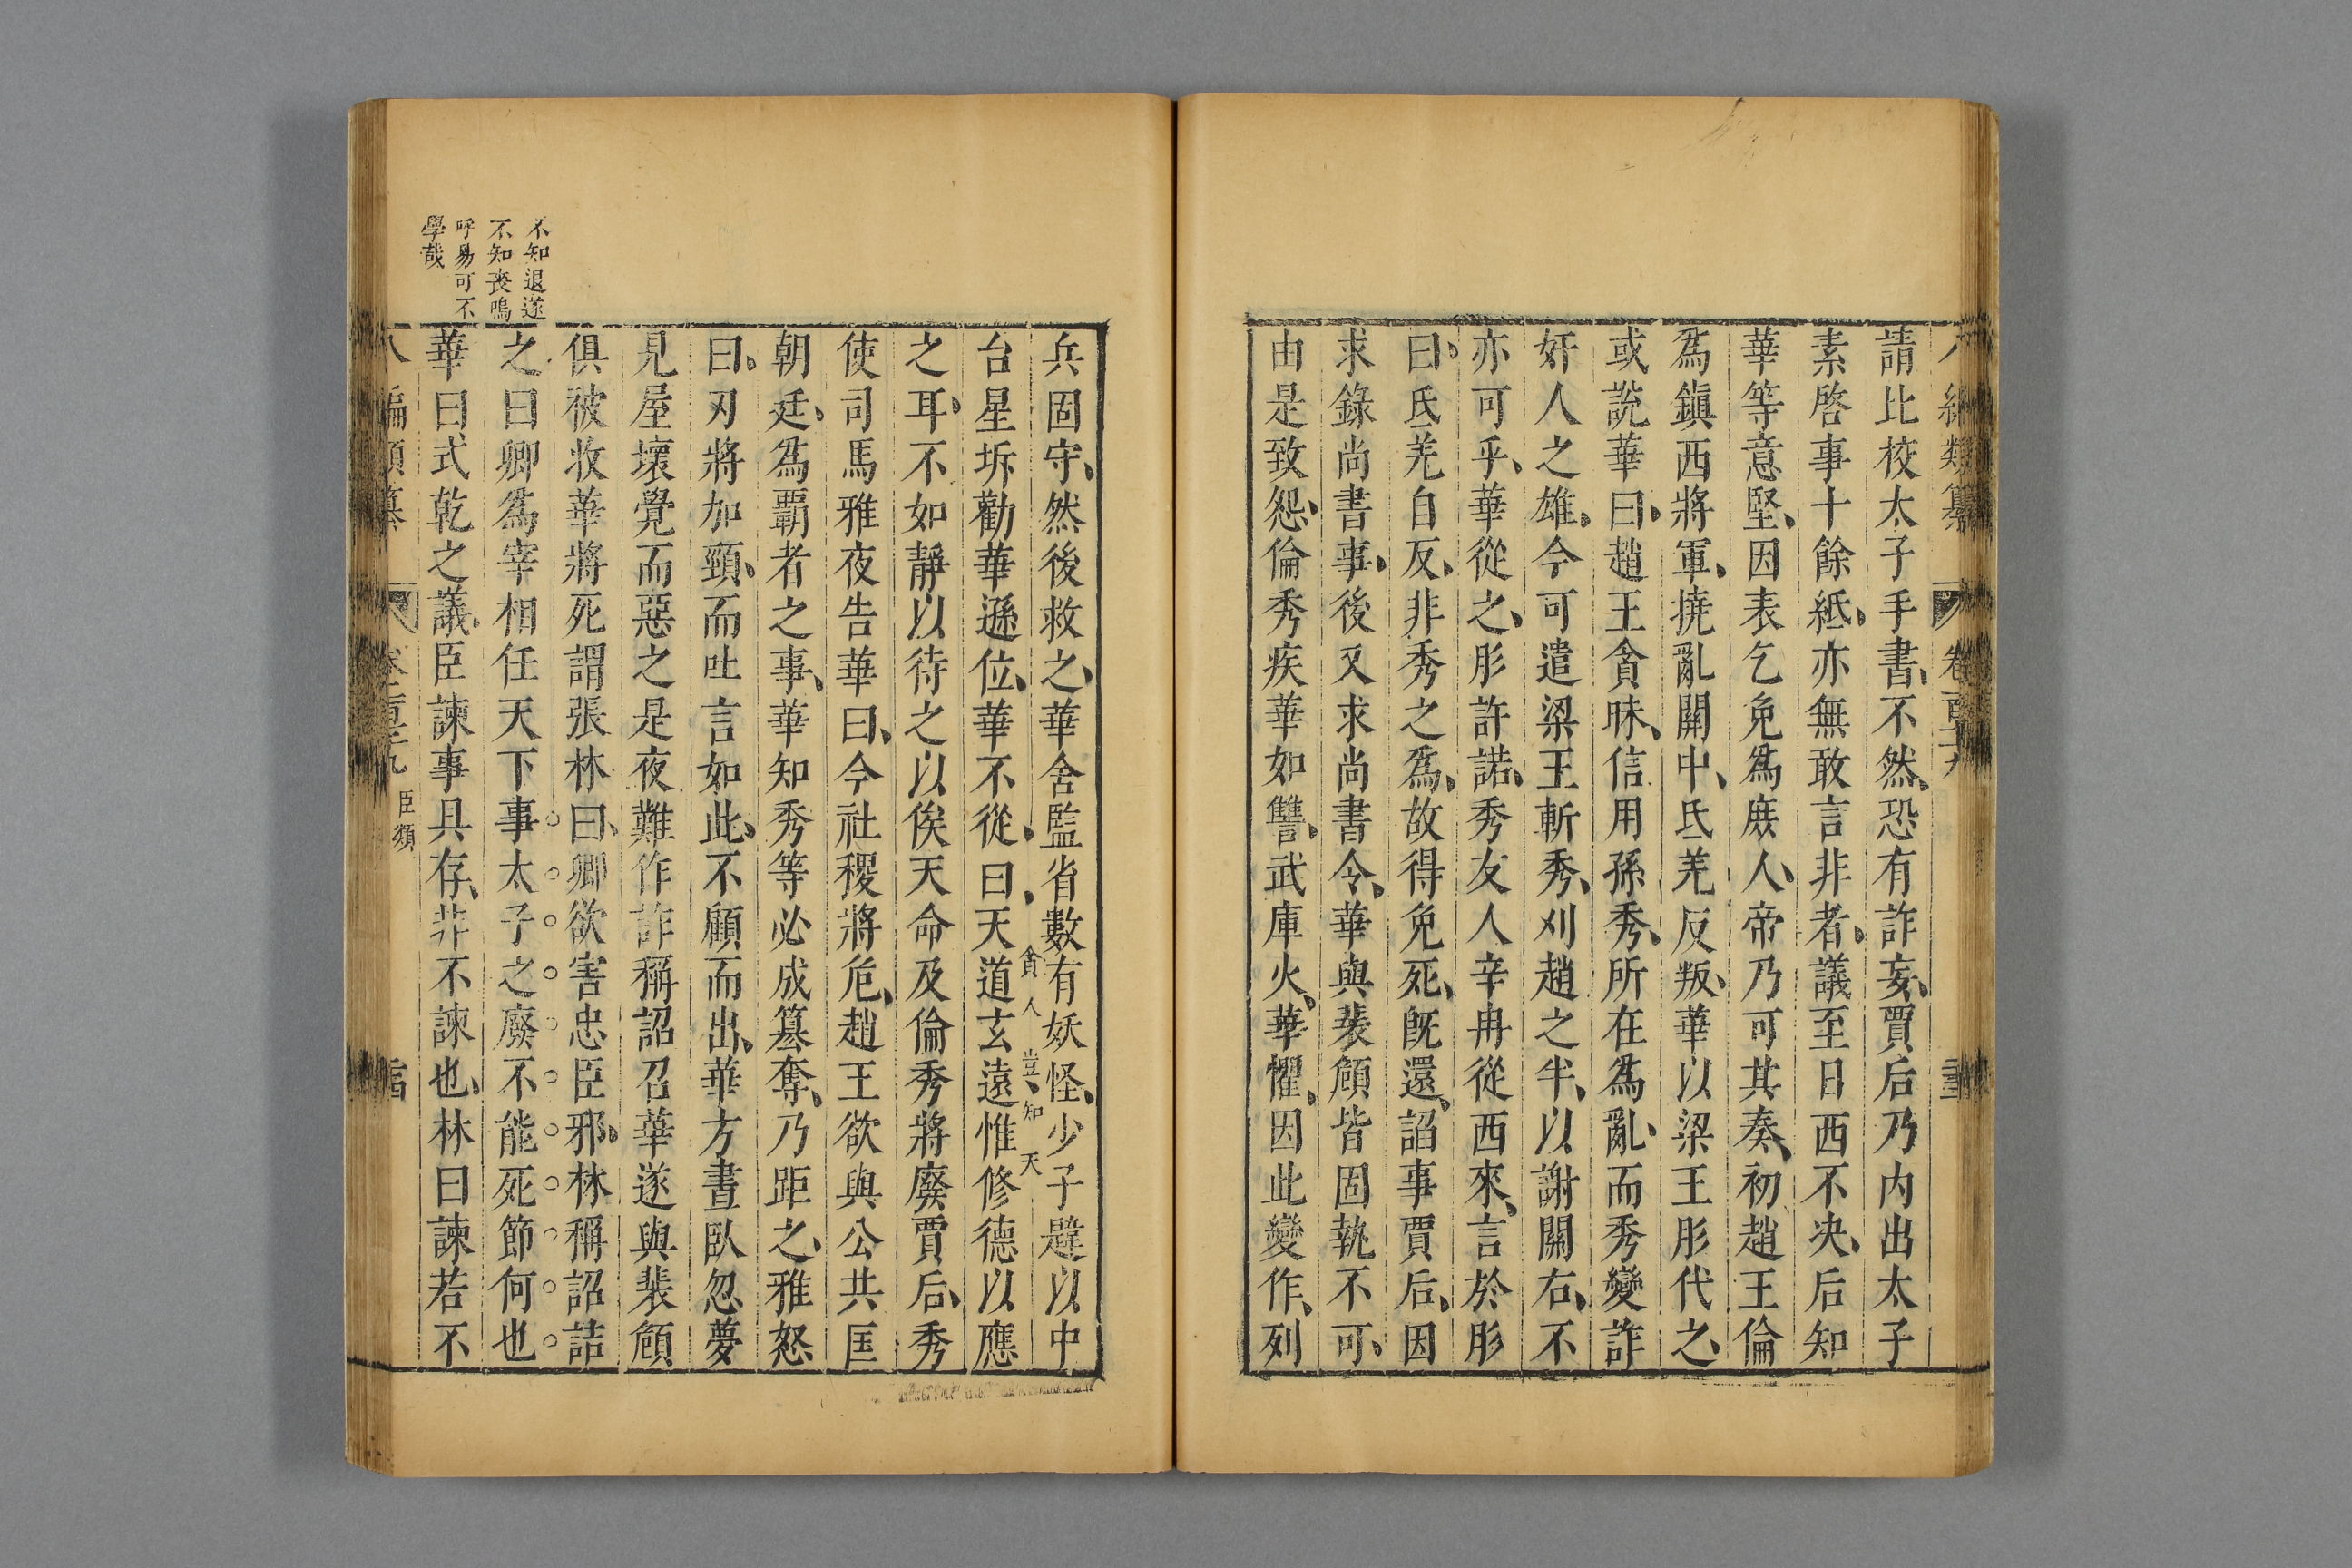 請比校太子手書不然恐有詐妄賈后乃内出太子
素啓事十餘紙亦無敢言非者議至日西不决后知
華等意堅因表乞免爲庻人帝乃可其奏初趙王倫
爲鎭西將軍撓亂關中氐羌反叛華以梁王肜代之
或說華曰趙王貪昧信用孫秀所在爲亂而秀變詐
奸人之雄今可遣梁王斬秀刈趙之半以謝關右不
亦可乎華從之肜許諾秀友人辛冉從西來言於肜
曰氐羌自反非秀之爲故得免死旣還諂事賈后因
求錄尚書事後又求尚書令華與裴頠皆固執不可
由是致怨倫秀疾華如讐武庫火華懼因此變作列
兵固守然後救之華舍監省數有妖怪少子韙以中
台星坼勸華遜位華不從曰天道玄遠惟修德以應
貪人豈知天
之耳不如靜以待之以俟天命及倫秀將廢賈后秀
使司馬雅夜告華曰今社稷將危趙王欲與公共匡
朝廷爲覇者之事華知秀等必成篡奪乃距之雅怒
曰刃將加頸而吐言如此不顧而出華方晝臥忽夢
見屋壞覺而惡之是夜難作詐稱詔召華遂與裴頠
俱被收華將死謂張林曰卿欲害忠臣邪林稱詔詰
之曰卿爲宰相任天下事太子之廢不能死節何也
華曰式乾之議臣諫事具存非不諫也林曰諫若不
不知退遂
不知喪嗚
呼易可不
學哉
臣類